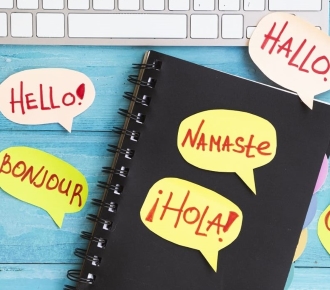 HALLO
HELLO!
NAMASTE
BONJOUR
¡HOLA!